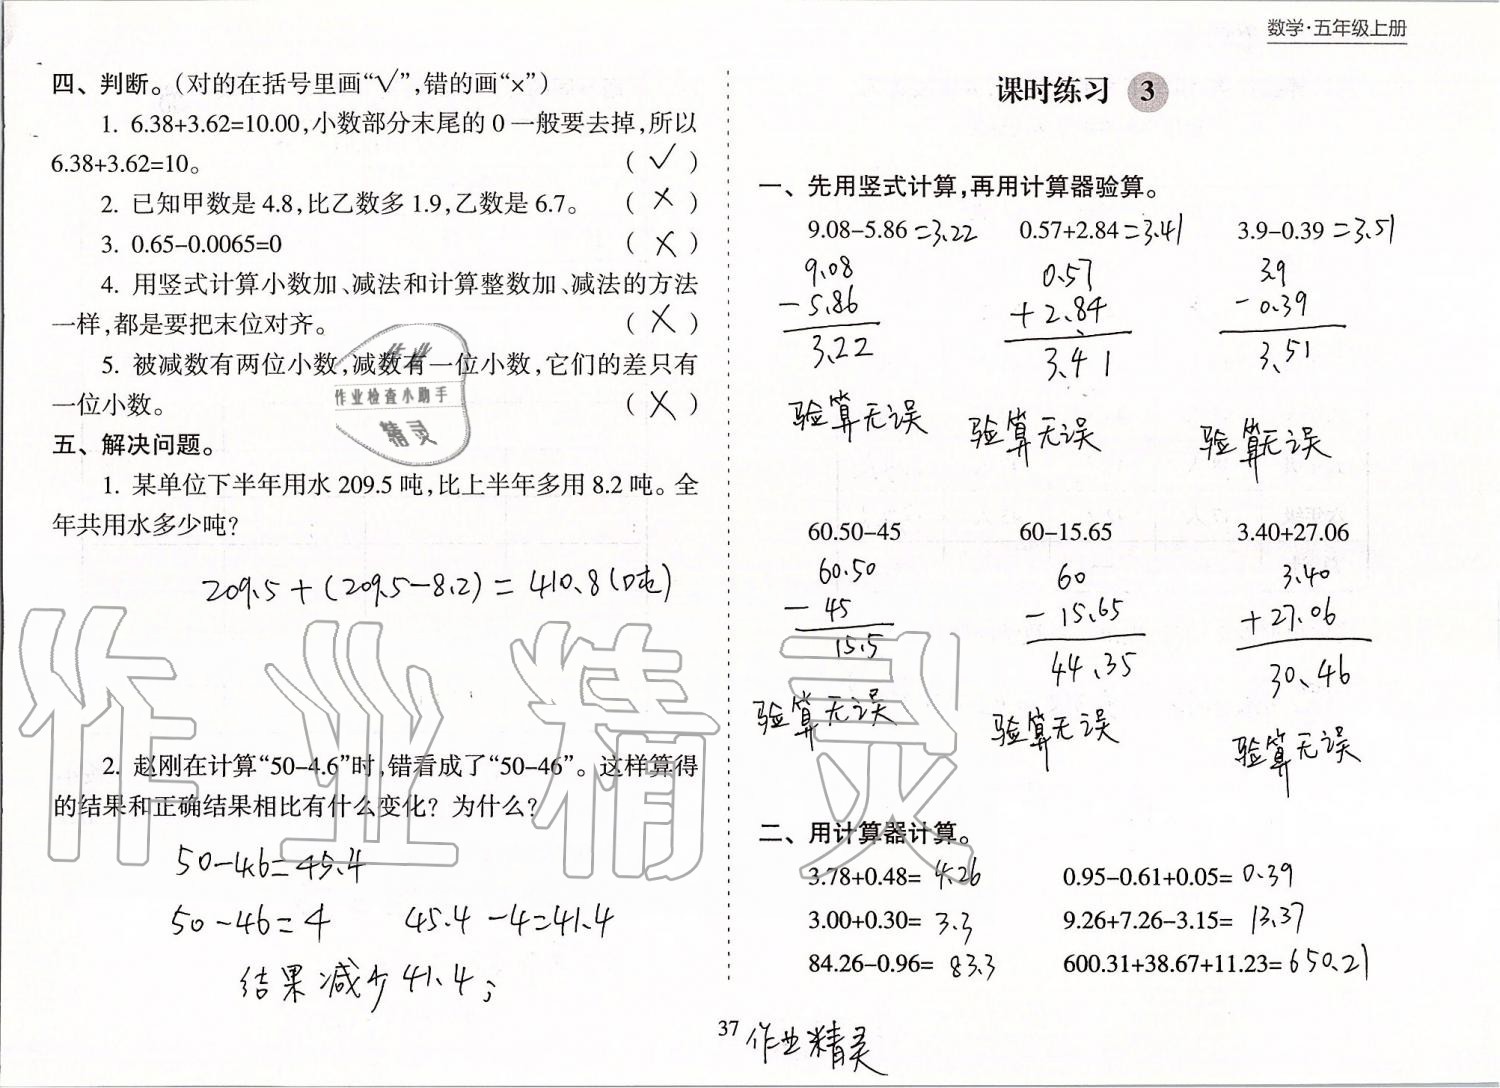 数学·五年级上册
四、判断。(对的在括号里画“√”,错的画“×”)
1. 6.38+3.62=10.00,小数部分末尾的 0 一般要去掉,所以
6.38+3.62=10。 ( √ )
2. 已知甲数是 4.8,比乙数多 1.9,乙数是 6.7。 ( × )
3. 0.65-0.0065=0 ( × )
4. 用竖式计算小数加、减法和计算整数加、减法的方法
一样,都是要把末位对齐。 ( × )
5. 被减数有两位小数,减数有一位小数,它们的差只有
一位小数。 ( × )
作业
作业检查小助手
精灵
五、解决问题。
1. 某单位下半年用水 209.5 吨,比上半年多用 8.2 吨。全
年共用水多少吨?
209.5+(209.5-8.2)=410.8(吨)
2. 赵刚在计算“50-4.6”时,错看成了“50-46”。这样算得
的结果和正确结果相比有什么变化? 为什么?
50-4.6=45.4
50-46=4 45.4-4=41.4
结果减少41.4;
课时练习 3
一、先用竖式计算,再用计算器验算。
9.08-5.86=3.22 0.57+2.84=3.41 3.9-0.39=3.51
9.08 0.57 3.9
-5.86 +2.84 -0.39
3.22 3.41 3.51
验算无误 验算无误 验算无误
60.50-45 60-15.65 3.40+27.06
60.50 60 3.40
-45 -15.65 +27.06
15.5 44.35 30.46
验算无误 验算无误 验算无误
二、用计算器计算。
3.78+0.48=4.26 0.95-0.61+0.05=0.39
3.00+0.30=3.3 9.26+7.26-3.15=13.37
84.26-0.96=83.3 600.31+38.67+11.23=650.21
37
作业精灵
作业精灵